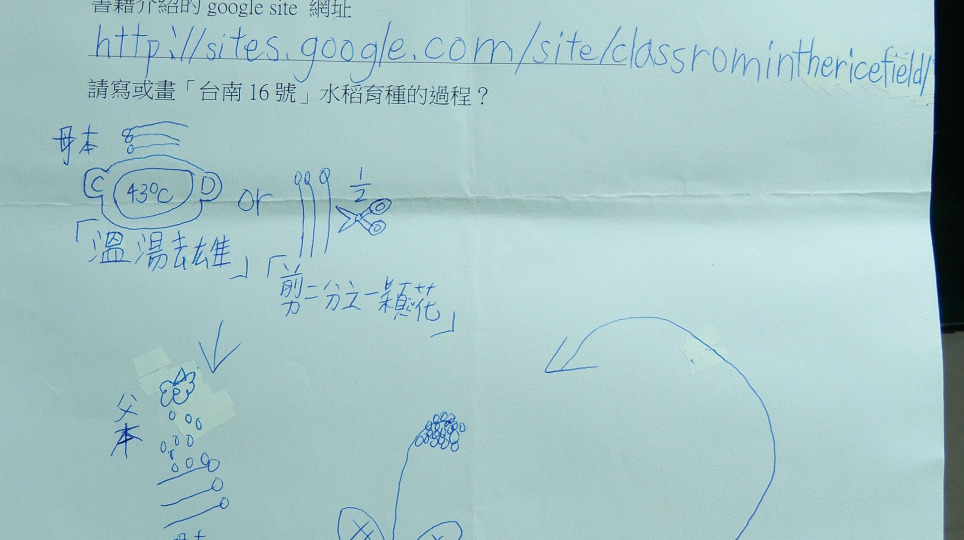 書籍介紹的 google site 網址
http://sites.google.com/site/classrominthericefield/
請寫或畫「台南 16 號」水稻育種的過程？
母本
43°C or 1/2
「溫湯去雄」「剪二分之一穎花」
父本